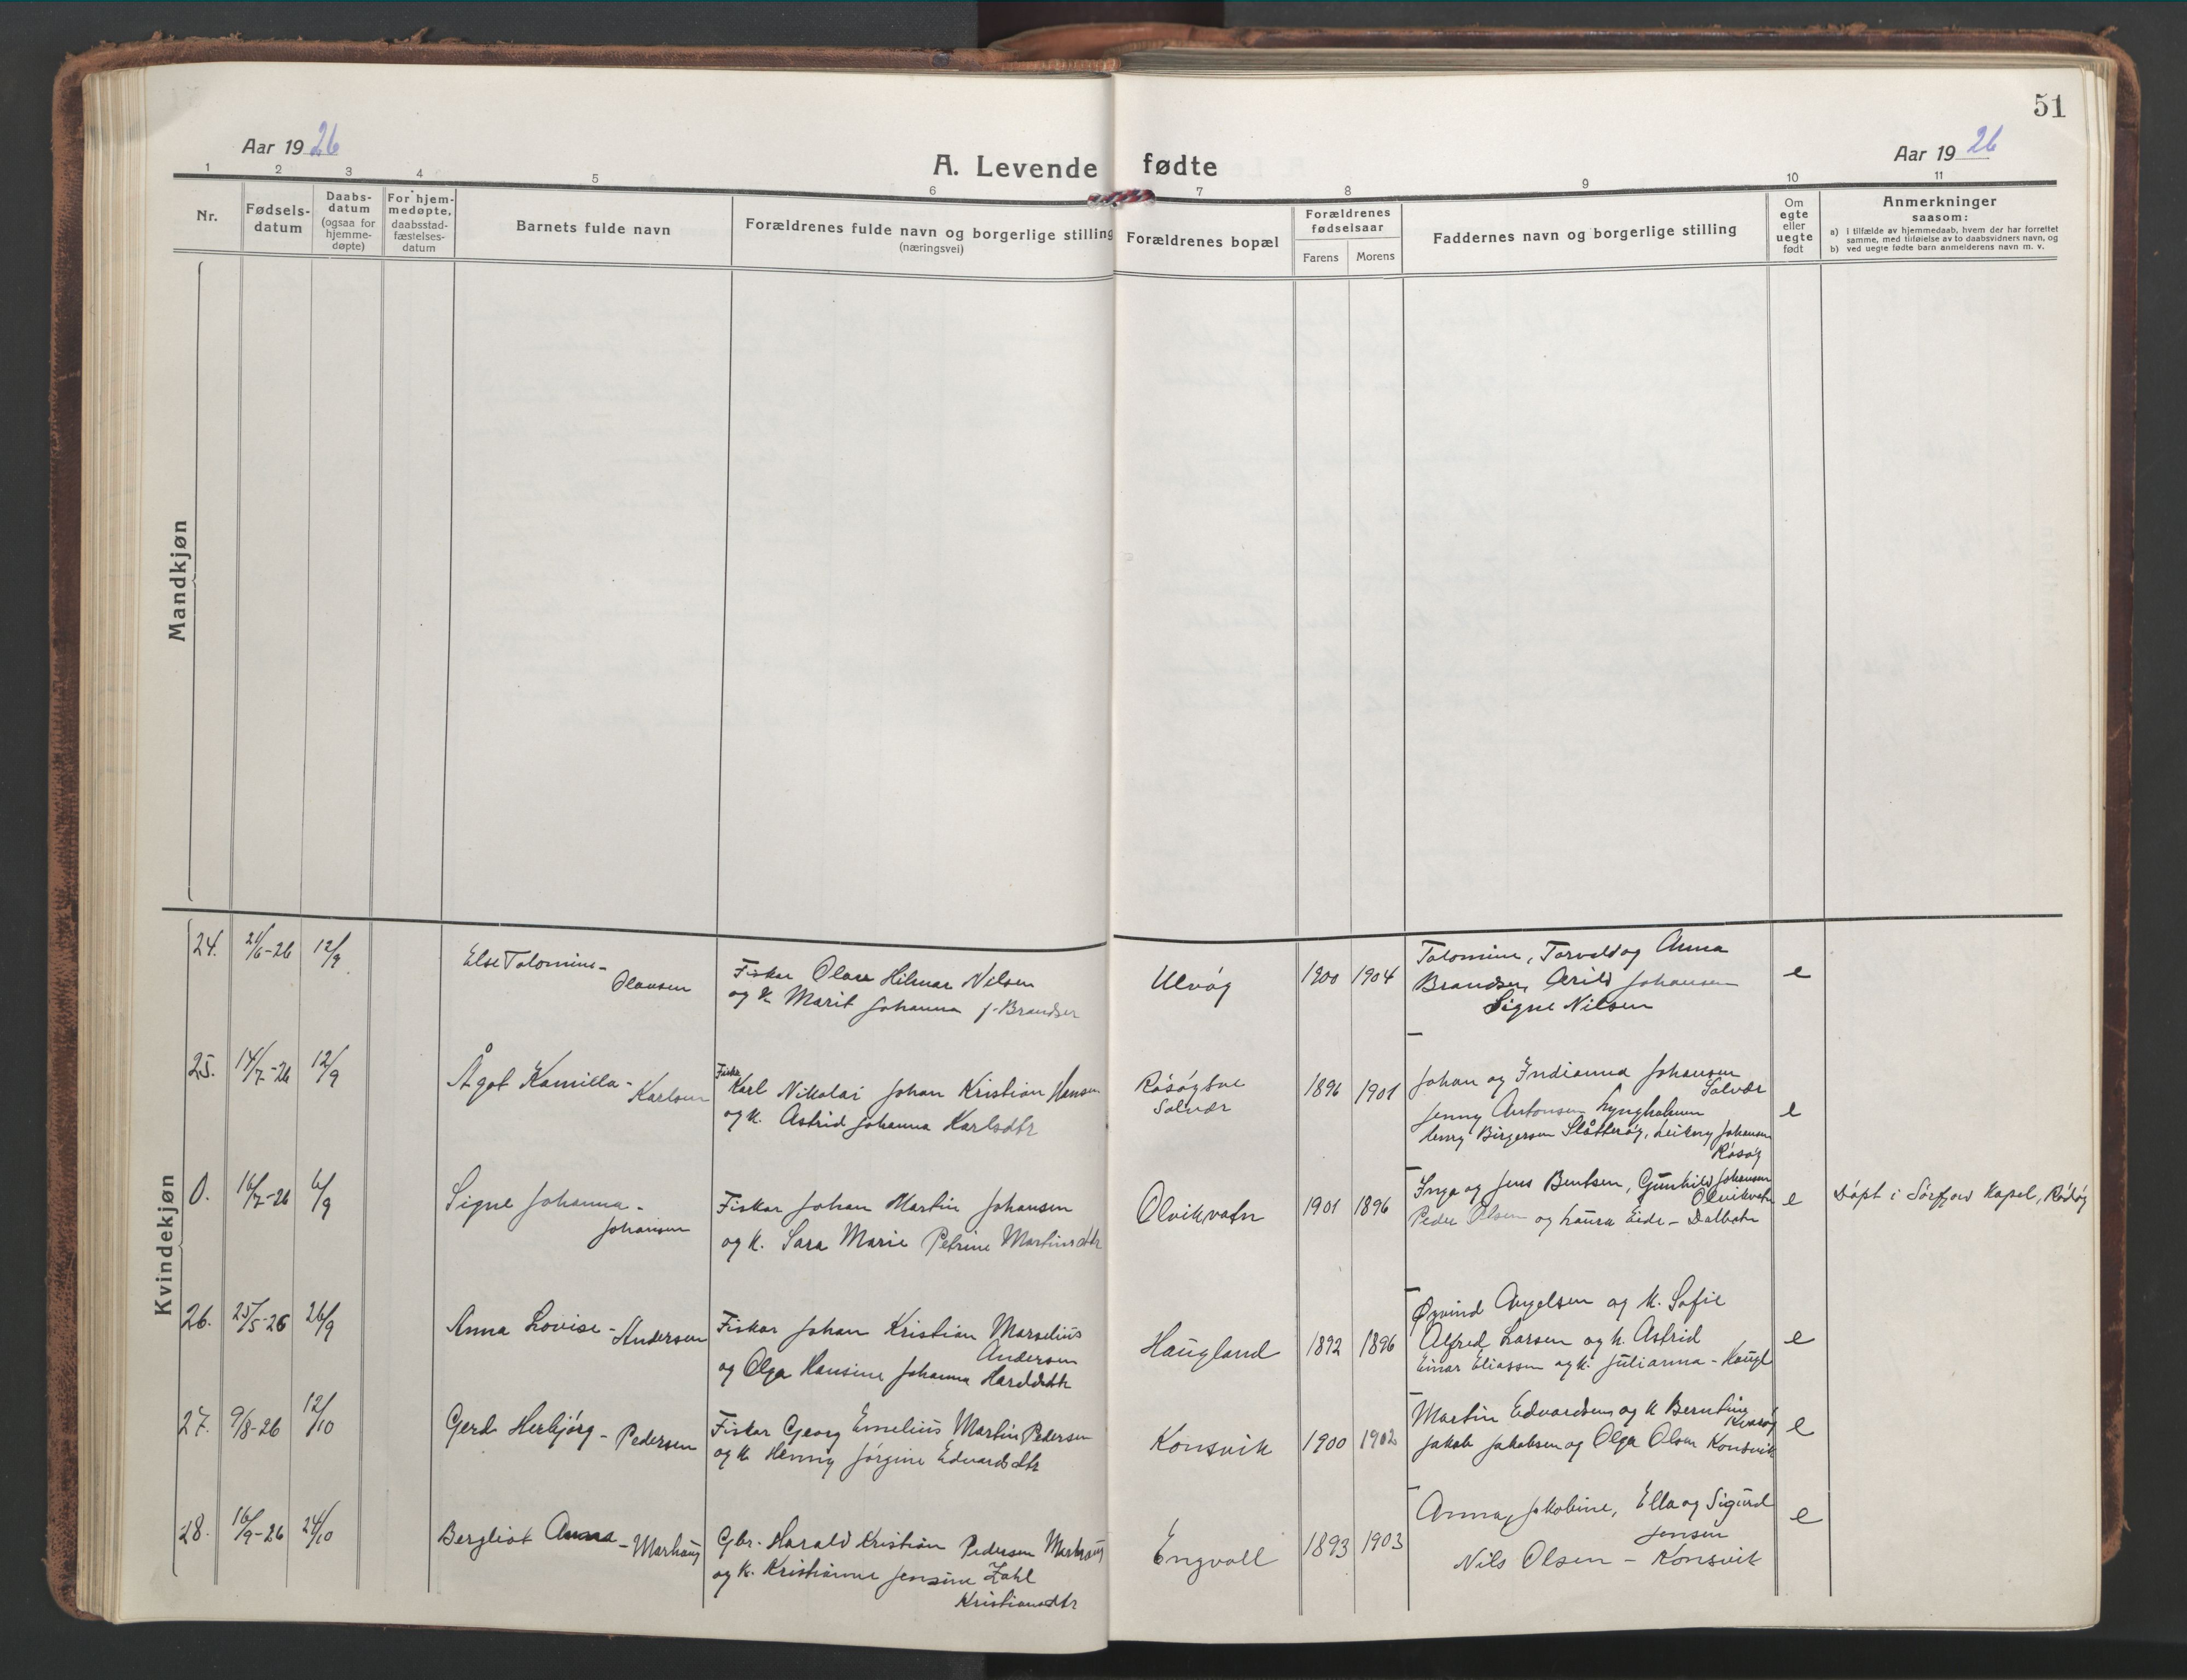 51
Aar 1926
A. Levende fødte
Aar 1926
1 2 3 4 5 6 7 8 9 10 11
Nr.
Fødselsdatum
Daabsdatum (ogsaa for hjemmedøpte)
For hjemmedøpte, daabsstadfæstelsesdatum
Barnets fulde navn
Forældrenes fulde navn og borgerlige stilling
(næringsvei)
Forældrenes bopæl
Forældrenes fødselsaar
Farens Morens
Faddernes navn og borgerlige stilling
Om egte eller uegte født
Anmerkninger
saasom:
a) i tilfælde av hjemmedaab, hvem der har forrettet samme, med tilføielse av to daabsvidners navn, og
b) ved uegte fødte barn anmelderens navn m. v.
Mandkjøn
Kvindekjøn
24. 21/6-26 12/9
Else Tolomine-
Olausen
Fisker Olaus Hilmar Nilsen
og K Marit Johanna f. Brandser
Ulvøy
1900 1904
Tolomine, Torvald og Anna
Brandser, Arild Johansen
Signe Nilsen
e
25. 14/7-26 12/9
Ågot Kamilla-
Karlsen
Fisker
Karl Nikolai Johan Kristian Hansen
og K. Astrid Johanna Karlsdtr
Solvær
1896 1901
Johan og Indianna Johansen
Solvær
Jenny Antonsen Lyngholmen
Birgersen Slåtterøy, Leikny Johansen
Råsøy
e
0. 16/7-26 6/9
Signe Johanna-
Johansen
Fisker Johan Martin Johansen
og K. Sara Marie Petrine Martinsdtr
Olvikvatn
1901 1896
Inga og Jens Bentsen, Gunhild Johansen
Olvikvatn
Peder Olsen og Laura Eide - Dalbotn
e
Døpt i Sørfjord Kapel, Rødøy
26. 25/5-26 26/9
Anna Lovise-Andersen
Fisker Johan Kristian Marselius
Andersen
og Olga Hansine Johanna Haraldsdtr
Haugland
1892 1896
Øyvind Angelsen og K. Sofie
Alfred Larsen og K. Astrid
Einar Eliassen og K. Julianna - Haugl
e
27. 9/8-26 12/10
Gerd Herbjørg-Pedersen
Fisker Georg Emelius Martin Pedersen
og K Henny Jørgine Edvardsdtr
Konsvik
1900 1902
Martin Edvardsen og K Berntine
Kvarøy
Jakob Jakobsen og Olga Olsen Konsvik
e
28. 16/9-26 24/10
Bergliot Anna-Marhaug
Gbr. Harald Kristian Pedersen Marhaug
og K. Kristianne Jensine Zahl
Kristiansdtr
Engvoll
1893 1903
Anna, Jakobine, Ella og Sigurd
Jensen
Nils Olsen - Konsvik
e